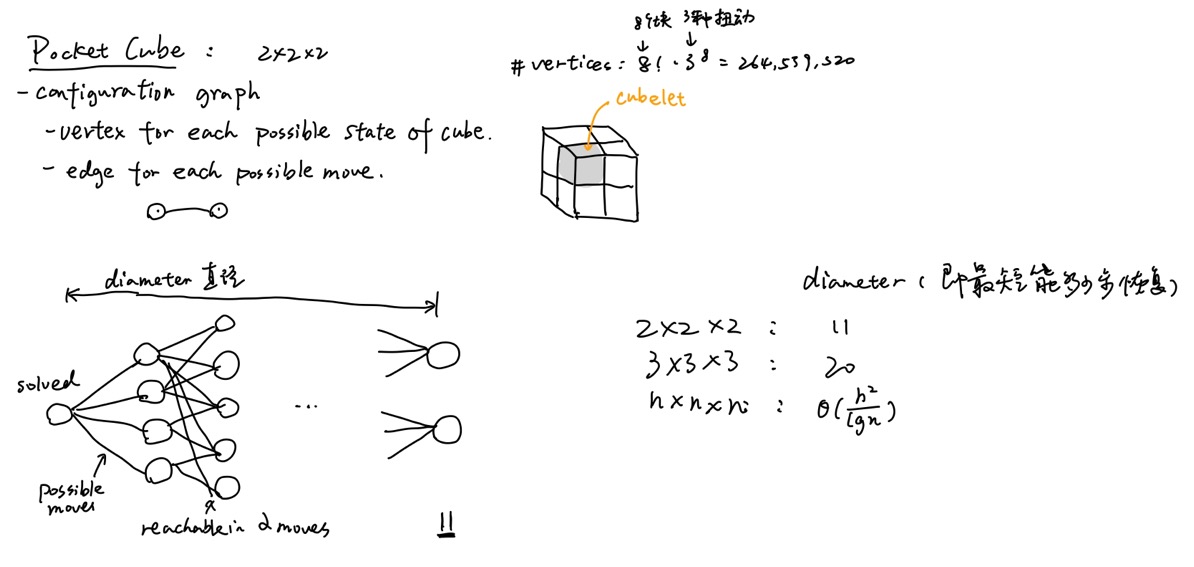 Pocket Cube : 2×2×2
- configuration graph
- vertex for each possible state of cube.
- edge for each possible move.
8个块 3种扭动
# vertices: 8! · 3⁸ = 264,539,520
cubelet
diameter 直径
solved
possible moves
...
reachable in 2 moves
11
diameter (即最短能多少步恢复)
2×2×2 : 11
3×3×3 : 20
n×n×n : Θ(n²/lgn)